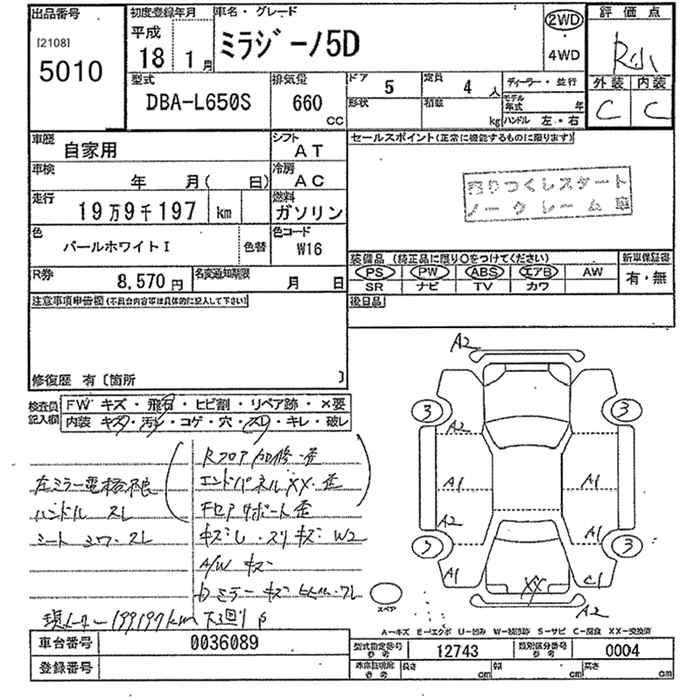 出品番号 初度登録年月 車名・グレード 評価点
[2108]
5010
平成
18 1月
ミラジーノ5D
2WD
4WD
R小
型式
DBA-L650S
排気量
660
CC
ドア 5
定員 4人
形状
積載 kg
ディーラー・並行
モデル年式 年
ハンドル 左・右
外装 内装
C C
車歴
自家用
シフト
AT
セールスポイント(正常に機能するものに限ります)
車検
年 月( 日)
冷房
AC
売りつくしスタート
ノークレーム車
走行
19万9千197 km
燃料
ガソリン
色
パールホワイトI
色替
色コード
W16
装備品 (純正品に限り○をつけてください)
新車保証書
PS PW ABS エアB AW
有・無
SR ナビ TV カワ
R券
8,570円
名変通知期限
月 日
後日品
注意事項申告欄(不具合内容等は具体的に記入して下さい)
修復歴 有〔箇所 〕
検査員記入欄
FW キズ・飛石・ヒビ割・リペア跡・×要
内装 キズ・汚レ・コゲ・穴・スレ・キレ・破レ
Rフロア加修・歪
左ミラー電格不良 エンドパネルXX・歪
ハンドル スレ Fコアサポート歪
シート シワ・スレ キズし・スリキズ W2
A/W キズ
ミラー キズ
現メーター199197km 下廻りS
A2
3 3
A2
A1 A1
A2 A1
3 3
A1 XX C1
A2
スペア
A-キズ E-エクボ U-凹み W-補修跡 S-サビ C-腐食 XX-交換済
車台番号 0036089
型式指定番号 参考 12743
類別区分番号 参考 0004
登録番号
車庫証明等 参考 長さ cm 幅 cm 高さ cm